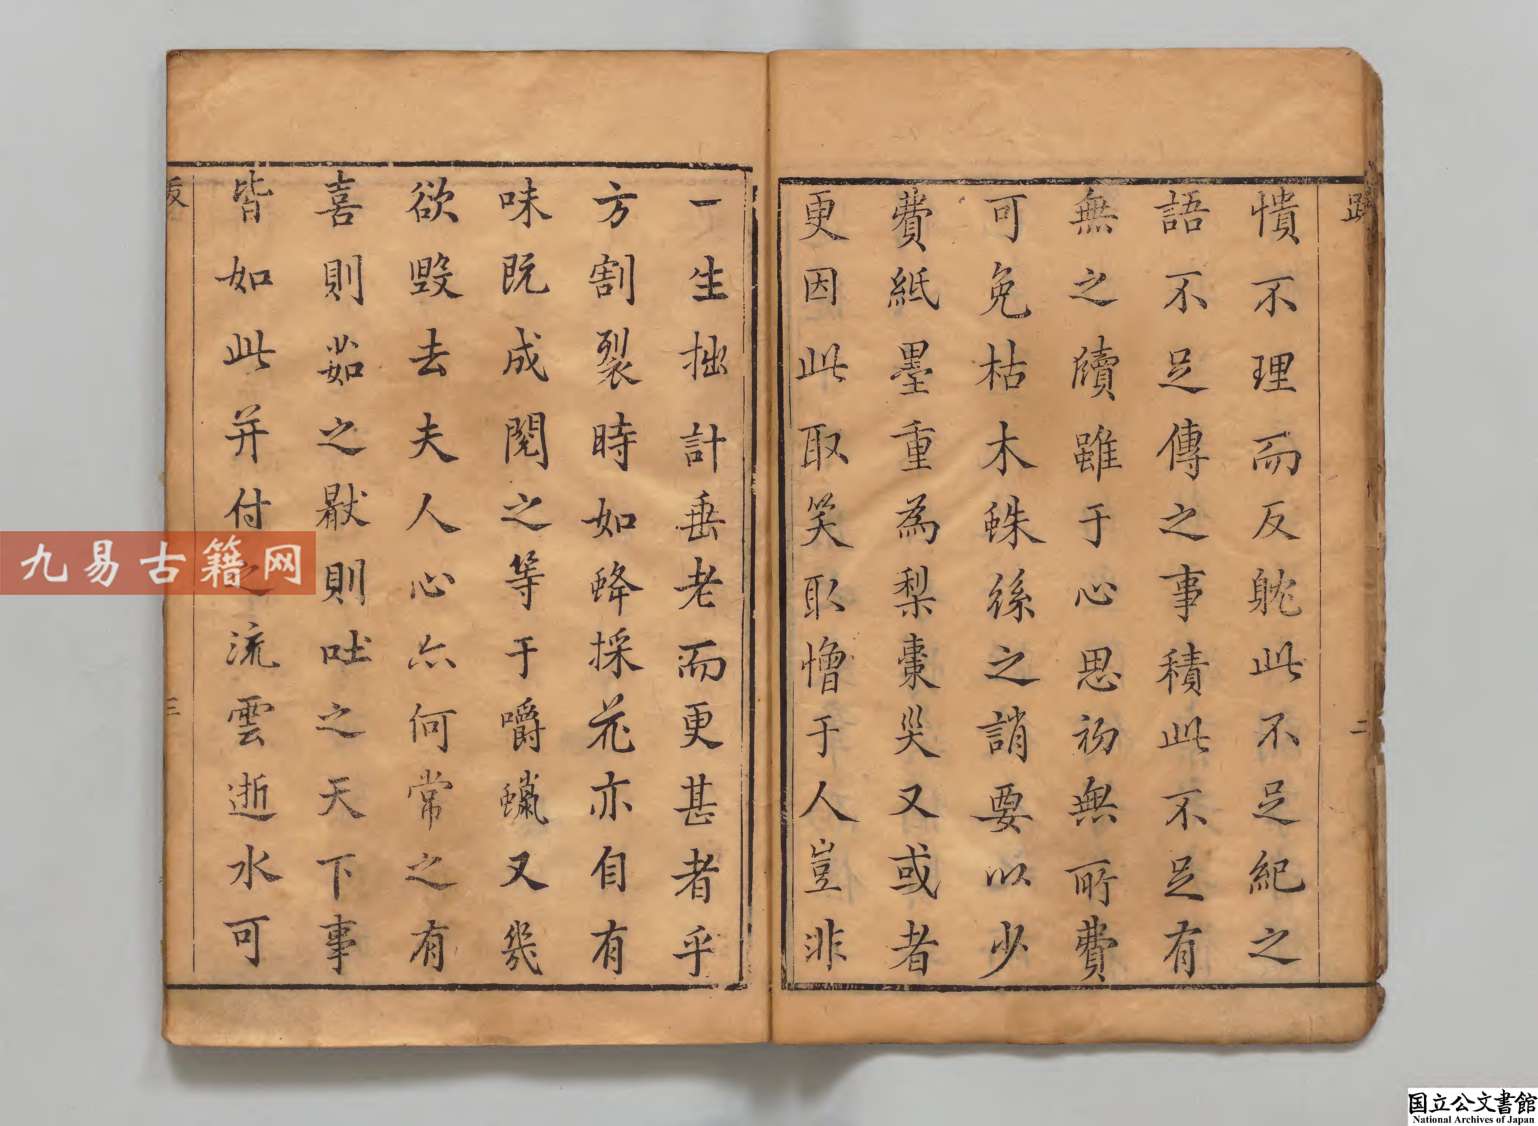 憒不理而反躭此不足紀之
語不足傳之事積此不足有
無之牘雖于心思初無所費
可免枯木蛛絲之誚要以少
費紙墨重為梨棗災又或者
更因此取笑取憎于人豈非
一生拙計垂老而更甚者乎
方割裂時如蜂採花亦自有
味既成閱之等于嚼蠟又幾
欲毀去夫人心亦何常之有
喜則茹之厭則吐之天下事
皆如此并付之流雲逝水可
跋
二
三
九易古籍网
国立公文書館
National Archives of Japan